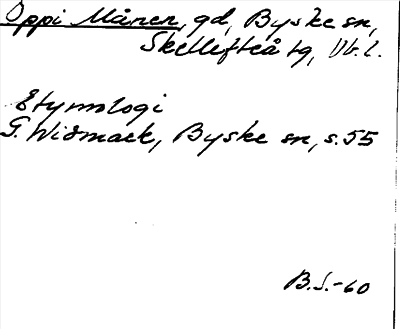 Oppi Månen, gd, Byske sn,
Skellefteå tg, Vb. l.
Etymologi
G. Widmark, Byske sn, s. 55
B.S.-60